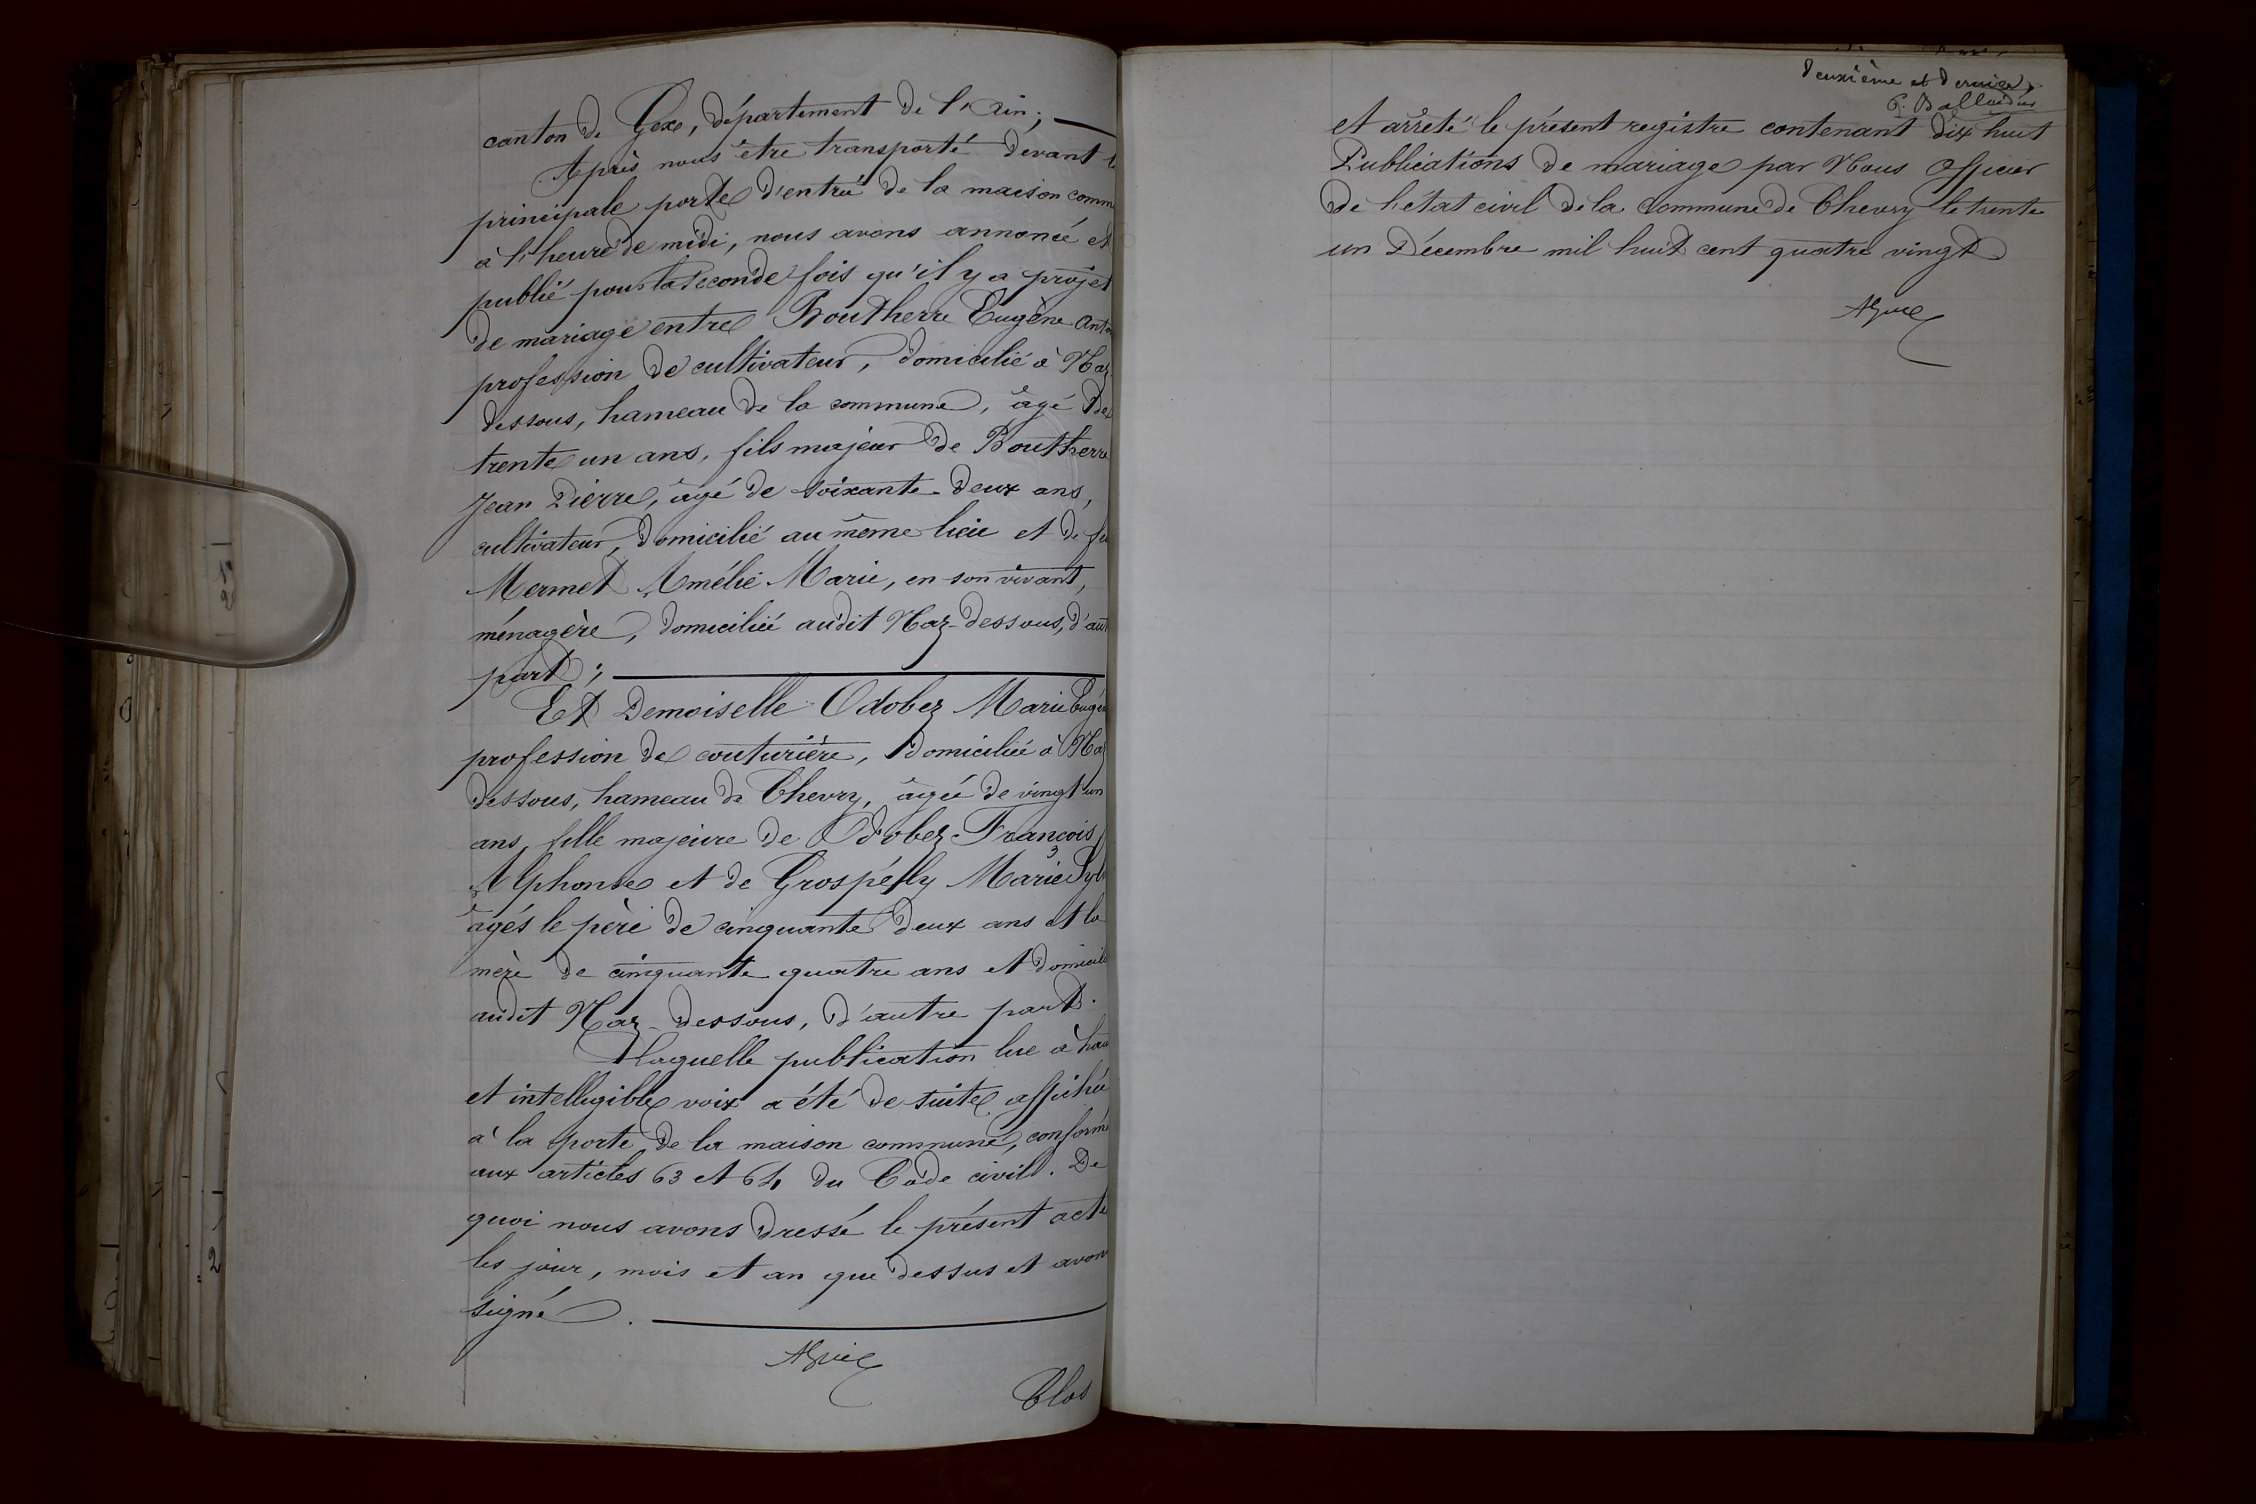 canton de Gex, département de l'Ain;
Après nous être transporté devant l
principale porte d'entrée de la maison comm
à l'heure de midi, nous avons annoncé et
publié pour la seconde fois qu'il y a projet
de mariage entre Boutherre Eugène Anto
profession de cultivateur, domicilié à Naz
dessous, hameau de la commune, âgé de
trente un ans, fils majeur de Boutherre
Jean Pierre, âgé de soixante-deux ans,
cultivateur, domicilié au même lieu et de fe
Mermet Amélie Marie, en son vivant,
ménagère, domiciliée audit Naz-dessous, d'aut
part;
Et Demoiselle Odobez Marie Eugén
profession de couturière, domiciliée à Naz
dessous, hameau de Chevry, âgée de vingt un
ans, fille majeure de Odobez François
Alphonse et de Grospélly Marie Syl
âgés le père de cinquante deux ans et la
mère de cinquante quatre ans et domicil
audit Naz-dessous, d'autre part.
Laquelle publication lue à hau
et intelligible voix a été de suite affichée
à la porte de la maison commune, conformé
aux articles 63 et 64 du Code civil. De
quoi nous avons dressé le présent acte
les jour, mois et an que dessus et avon
signé.
Clos
deuxième et dernier.
et arrêté le présent registre contenant dix huit
Publications de mariage par Nous Officier
de l'état civil de la Commune de Chevry le trente
un Décembre mil huit cent quatre vingt